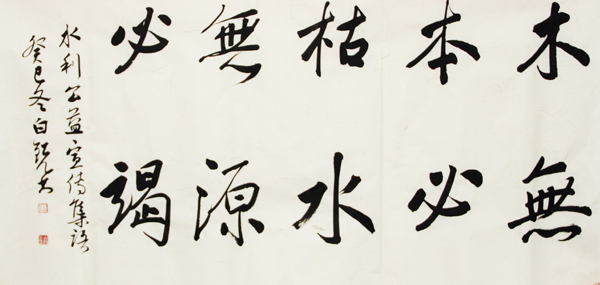 木無
本必
枯水
無源
必竭
水利公益宣传集語
癸巳冬白